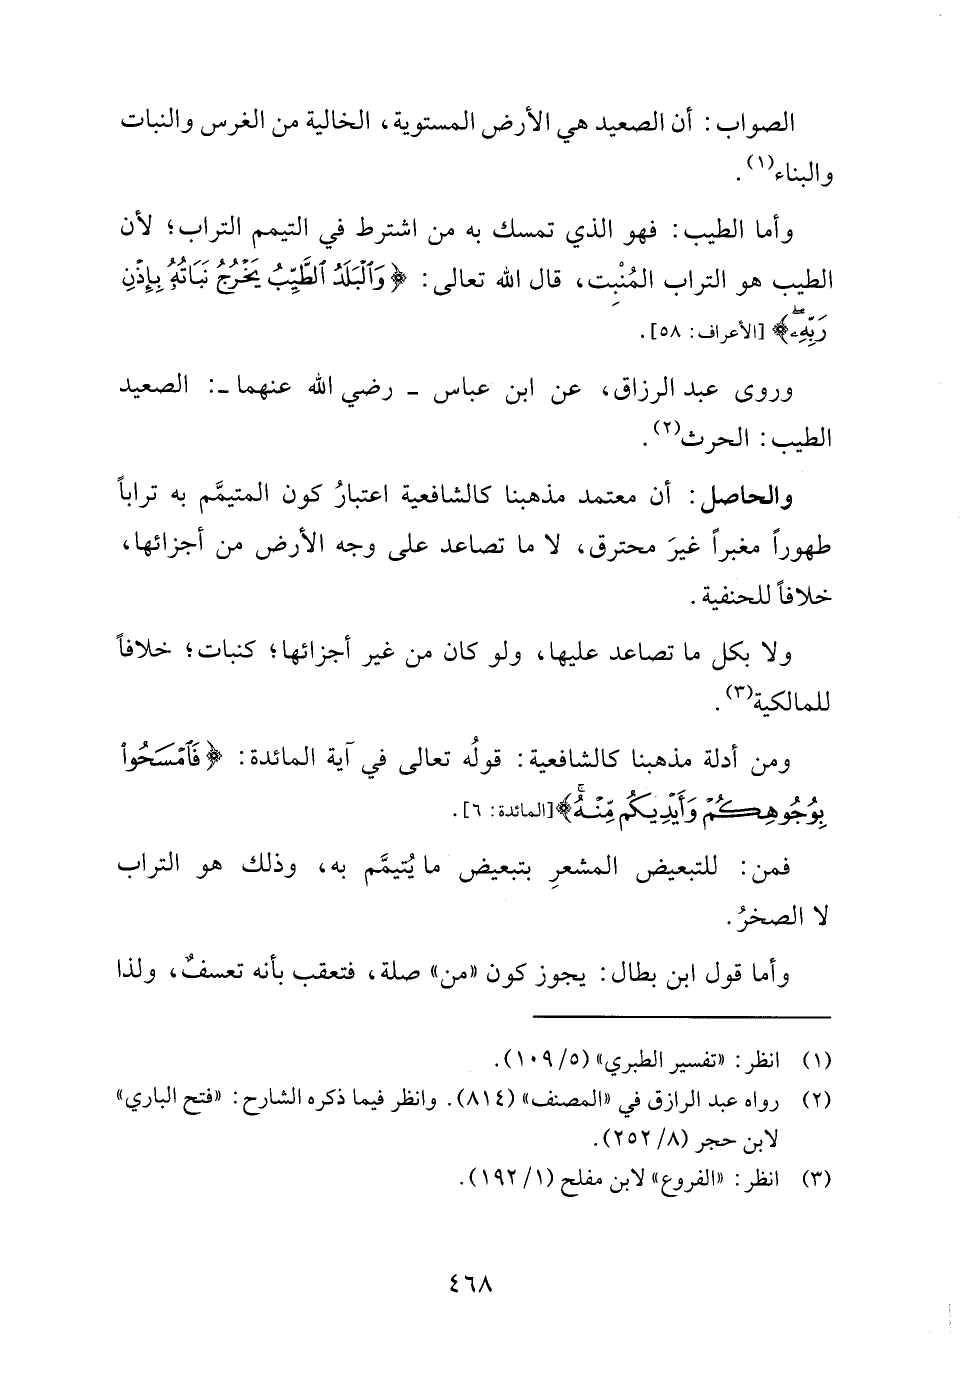 الصواب: أن الصعيد هي الأرض المستوية، الخالية من الغرس والنبات
والبناء(١).
وأما الطيب: فهو الذي تمسك به من اشترط في التيمم التراب؛ لأن
الطيب هو التراب المُنْبِت، قال الله تعالى: ﴿وَٱلْبَلَدُ ٱلطَّيِّبُ يَخْرُجُ نَبَاتُهُۥ بِإِذْنِ
رَبِّهِۦ﴾ [الأعراف: ٥٨].
وروى عبد الرزاق، عن ابن عباس ـ رضي الله عنهما ـ: الصعيد
الطيب: الحرث(٢).
والحاصل: أن معتمد مذهبنا كالشافعية اعتبارُ كون المتيمَّم به تراباً
طهوراً مغبراً غيرَ محترق، لا ما تصاعد على وجه الأرض من أجزائها،
خلافاً للحنفية.
ولا بكل ما تصاعد عليها، ولو كان من غير أجزائها؛ كنبات؛ خلافاً
للمالكية(٣).
ومن أدلة مذهبنا كالشافعية: قولُه تعالى في آية المائدة: ﴿فَٱمْسَحُوا۟
بِوُجُوهِكُمْ وَأَيْدِيكُم مِّنْهُ﴾ [المائدة: ٦].
فمن: للتبعيض المشعرِ بتبعيض ما يُتيمَّم به، وذلك هو التراب
لا الصخرُ.
وأما قول ابن بطال: يجوز كون «من» صلة، فتعقب بأنه تعسفٌ، ولذا
(١) انظر: «تفسير الطبري» (٥/ ١٠٩).
(٢) رواه عبد الرازق في «المصنف» (٨١٤). وانظر فيما ذكره الشارح: «فتح الباري»
لابن حجر (٨/ ٢٥٢).
(٣) انظر: «الفروع» لابن مفلح (١/ ١٩٢).
٤٦٨